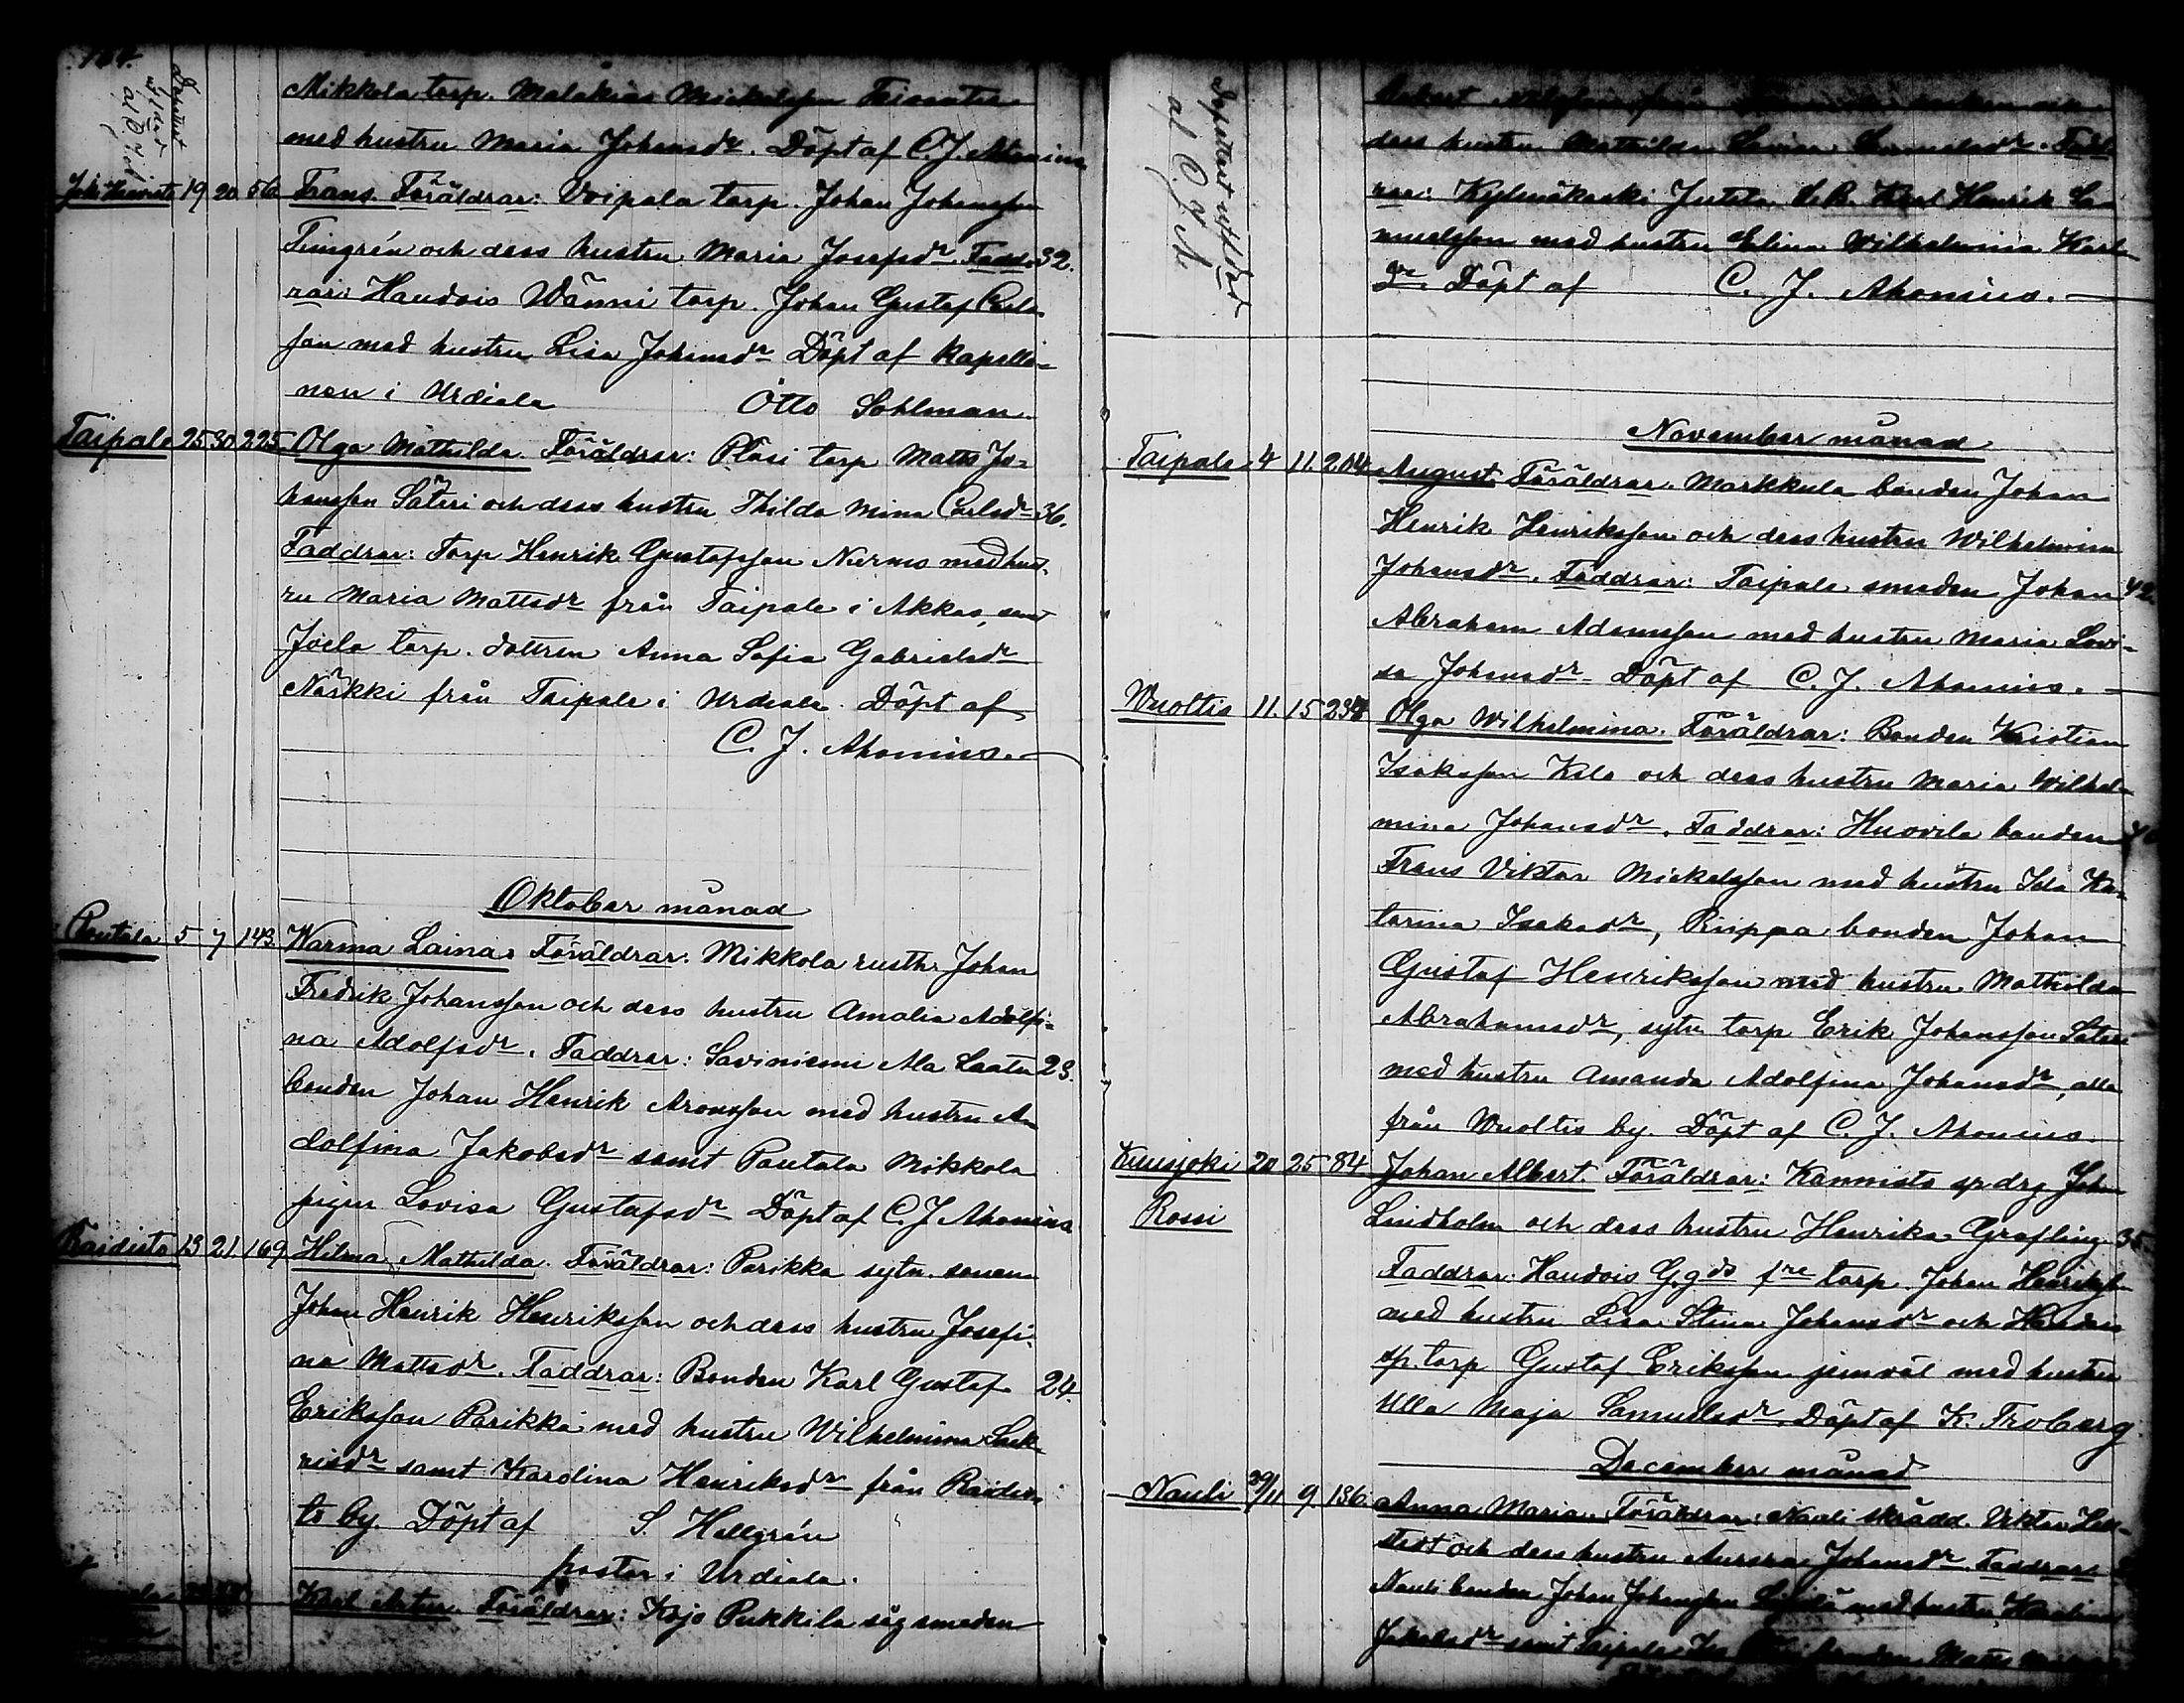 Mikkola torp. Malakias Mickelsson
med hustru Maria Johansdr. Döpt af C. J. Ahonius
19 20 56 Frans. Föräldrar: Voipala torp. Johan Johansson
Timgrén och dess hustru Maria Josefsdr. Fadd- 32.
rar: Handois Wänni torp. Johan Gustaf Carls-
son med hustru Lisa Johansdr Döpt af Kapella-
nen i Urdiala Otto Sohlman.
Taipale 25 30 225 Olga Mathilda. Föräldrar: Pläsi torp Matts Jo-
hansson Säteri och dess hustru Thilda Mina Carlsdr 36.
Faddrar: Torp Henrik Gustafsson Nurmi med hust-
ru Maria Mattsdr från Taipale i Akkas, samt
Joela torp. dottren Anna Sofia Gabrielsdr
Näkki från Taipale i Urdiala. Döpt af
C. J. Ahonius.
Oktober månad
Pentala 5 7 143 Warma Laina. Föräldrar. Mikkola rusth. Johan
Fredrik Johansson och dess hustru Amalia Adolfi-
na Adolfsdr. Faddrar: Saviniemi Ala Laata 23.
bonden Johan Henrik Aronsson med hustru A-
dolfina Jakobsdr samt Pentala Mikkola
pigan Lovisa Gustafsdr Döpt af C. J. Ahonius
Raidisto 13 21 169 Hilma Mathilda. Föräldrar: Parikka sytn. sonen
Johan Henrik Henriksson och dess hustru Josefi-
na Mattsdr. Faddrar: Bonden Karl Gustaf 24.
Eriksson Parikka med hustru Wilhelmina
samt Karolina Henriksdr från Raidis-
to by. Döpt af S. Hellgrén
pastor i Urdiala.
Karl Artur. Föräldrar: Kojo Pukkila sågsmeden
dess hustru Mathilda Lovisa Samuelsdr. Fadd-
rar: Kylmäkoski Jutila Karl Henrik Sa-
muelsson med hustru Elina Wilhelmina Karls-
dr. Döpt af C. J. Ahonius.
November månad
Taipale 4 11. 204 August. Föräldrar. Markkula bonden Johan
Henrik Henriksson och dess hustru Wilhelmina
Johansdr. Faddrar: Taipale smeden Johan 42.
Abraham Adamsson med hustru Maria Lovi-
sa Johansdr. Döpt af C. J. Ahonius.
Wuoltis 11. 15 Olga Wilhelmina. Föräldrar: Bonden Kristian
Isaksson och dess hustru Maria Wilhel-
mina Johansdr. Faddrar: Huovila bonden
Frans Viktor Mickelsson med hustru Ida Ka-
tarina Isaksdr, Riippa bonden Johan
Gustaf Henriksson med hustru Mathilda
Abrahamsdr, sytn torp Erik Johansson
med hustru Amanda Adolfina Johansdr, alla
från Wuoltis by. Döpt af C. J. Ahonius.
Kuusjoki 20 25 84 Johan Albert. Föräldrar: Kannisto sp. drg Johan
Rossi
Lindholm och dess hustru Henrika Grafling 35.
Faddrar: Handois Ggds fre torp. Johan Henriksson
med hustru Lisa Stina Johansdr och Handois
sp. torp Gustaf Eriksson jemväl med hustru
Ulla Maja Samuelsdr. Döpt af K. Froberg
December månad
Nauli 29/11 9 136 Anna Maria. Föräldrar: Nauli skrädd. Viktor
och dess hustru Aurora Johansdr. Faddrar:
Nauli bonden Johan Johansson med hustru Karolina
Jakobsdr samt Taipale bonden Matts